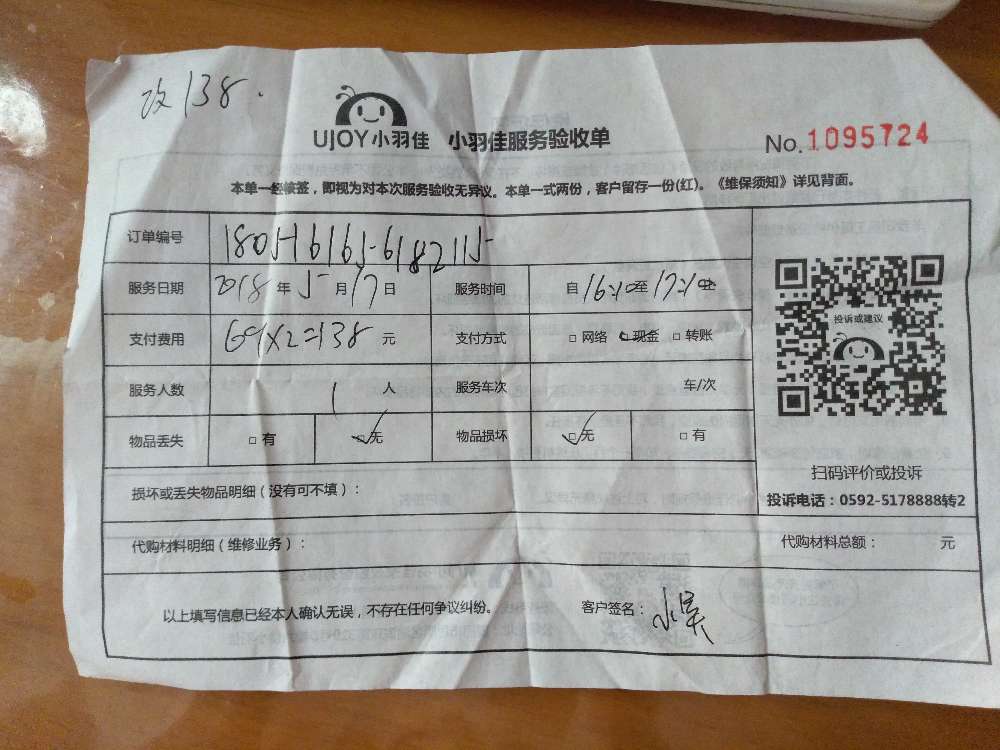 改138.
UJOY小羽佳 小羽佳服务验收单
No.1095724
本单一经核签，即视为对本次服务验收无异议。本单一式两份，客户留存一份(红)。《维保须知》详见背面。
订单编号 1805161656182115
服务日期 2018年5月17日 服务时间 自16:10至17:10止
支付费用 69X2=138元 支付方式 □网络 □现金 □转账
服务人数 1人 服务车次 车/次
物品丢失 □有 ☑无 物品损坏 ☑无 □有
投诉或建议
扫码评价或投诉
投诉电话：0592-5178888转2
损坏或丢失物品明细（没有可不填）：
代购材料明细（维修业务）： 代购材料总额： 元
以上填写信息已经本人确认无误，不存在任何争议纠纷。 客户签名：小吴